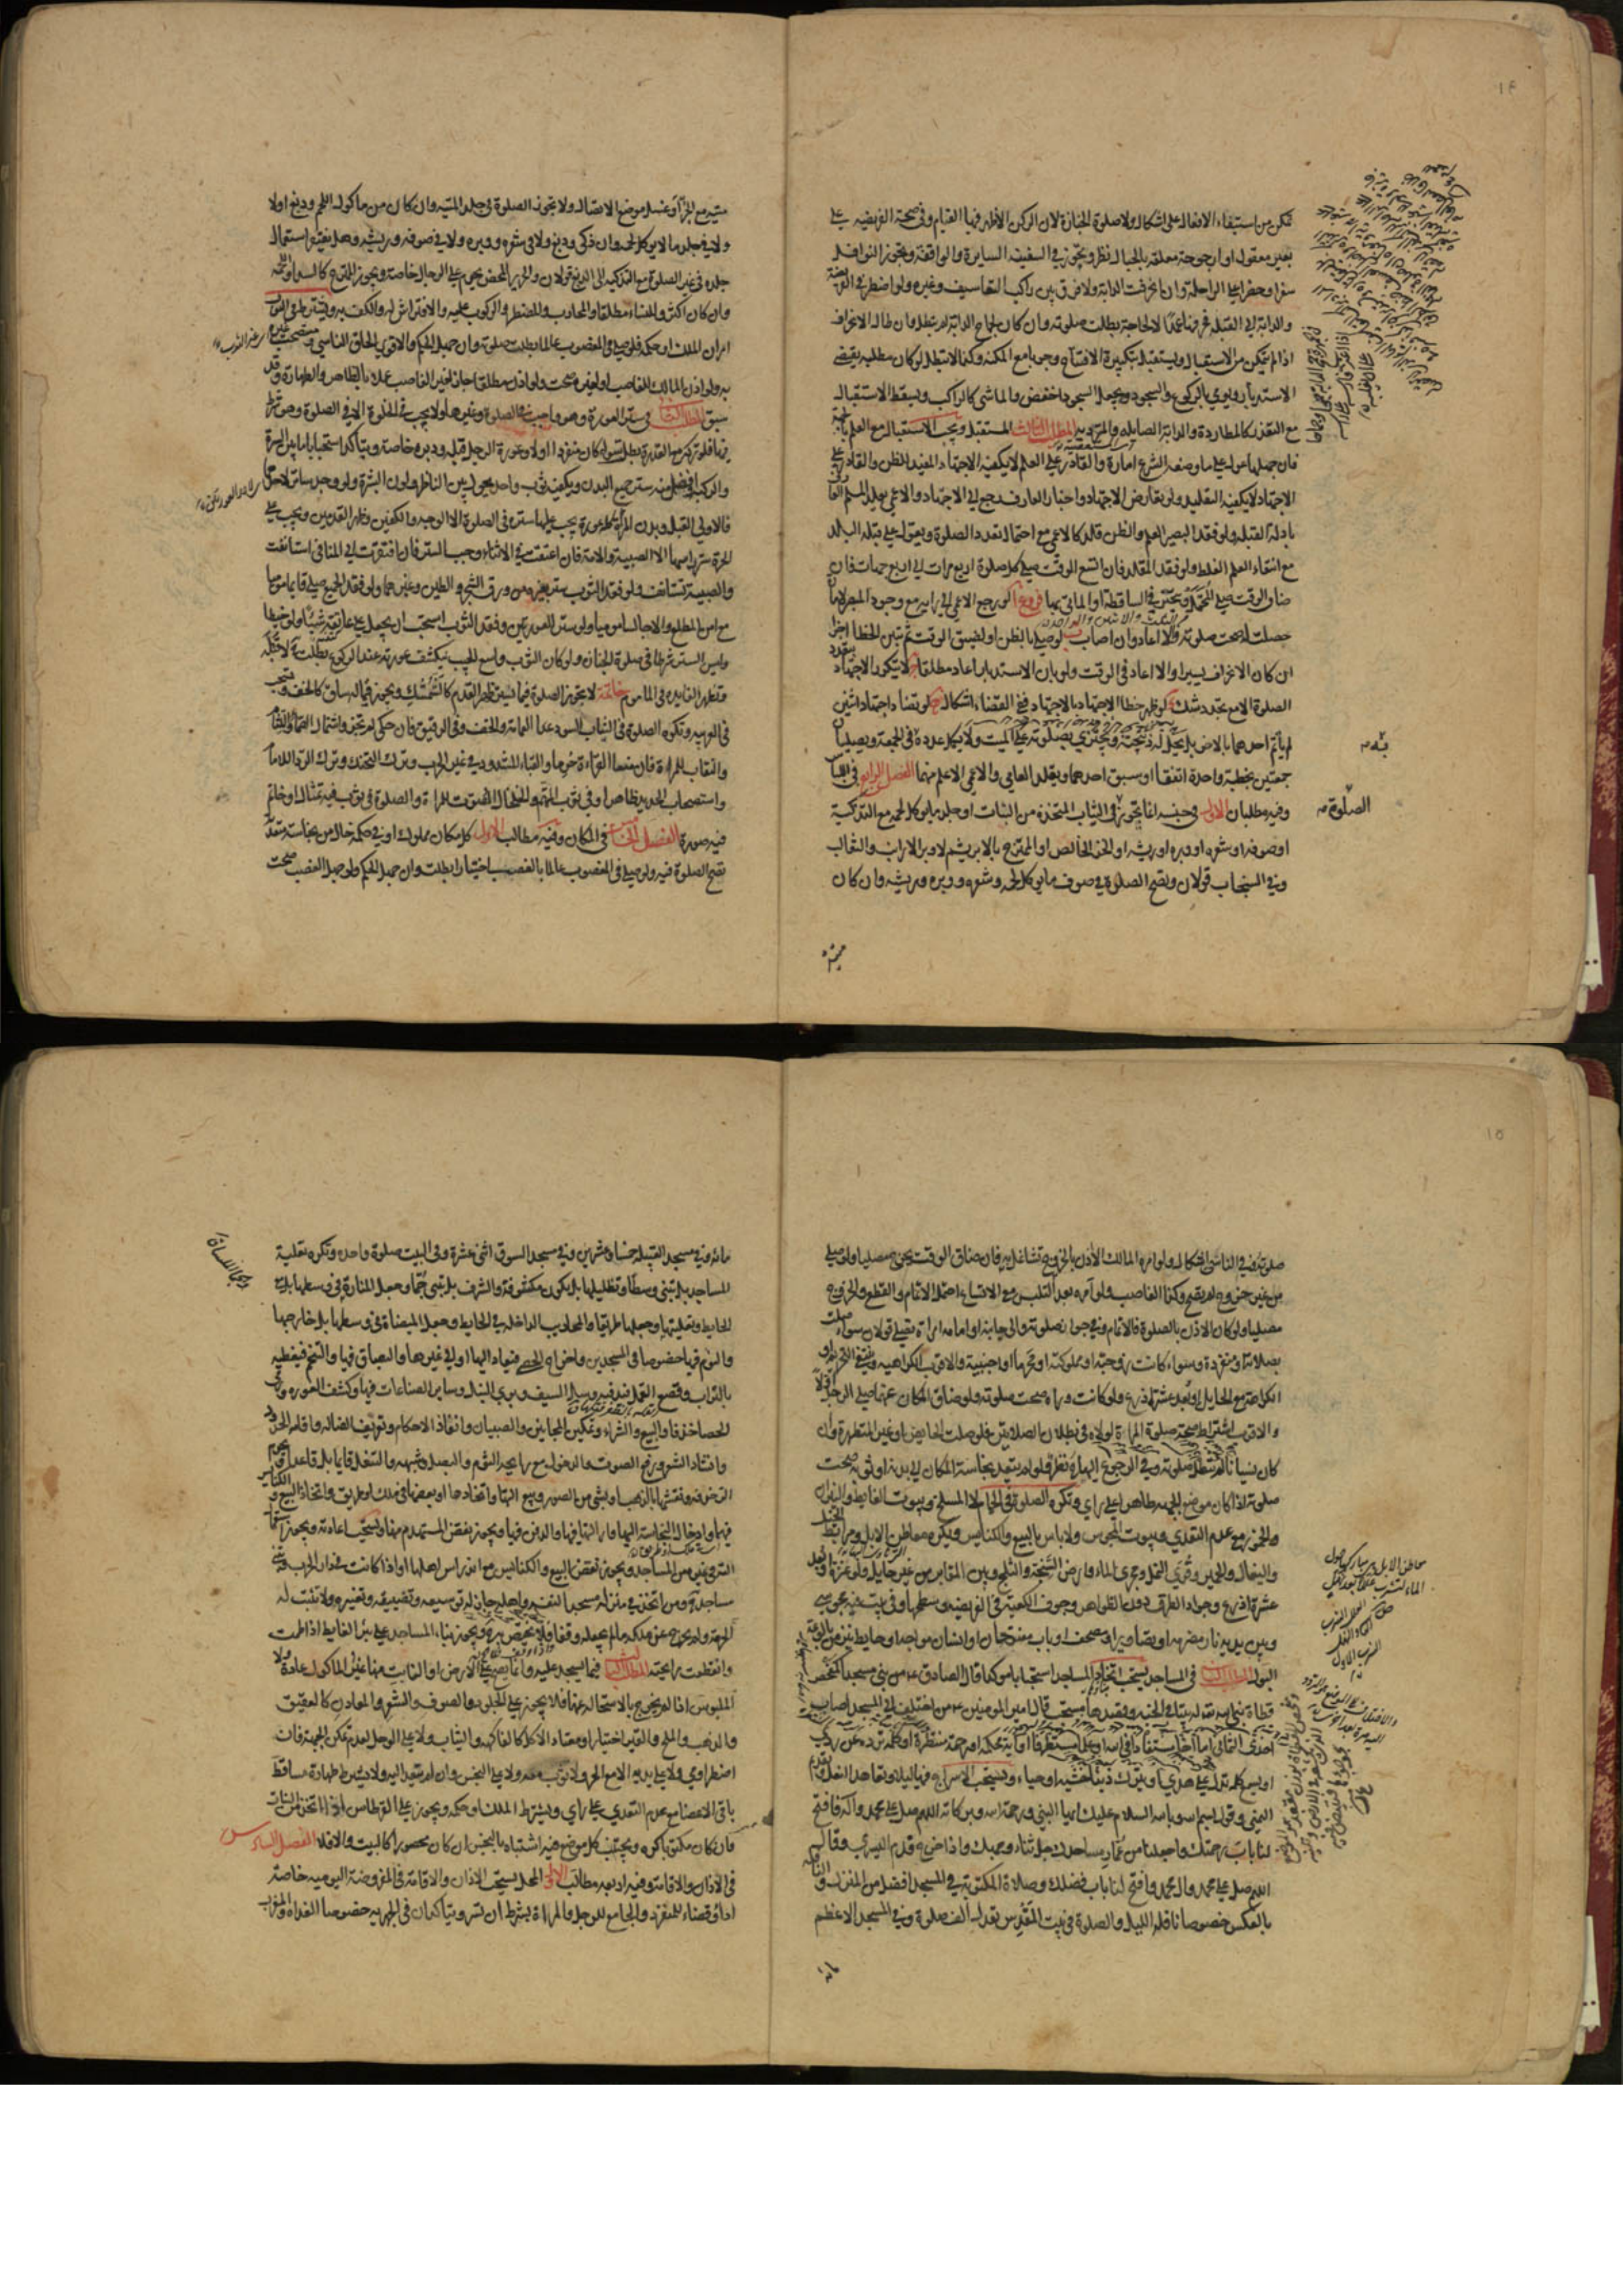 تمكن من استيفاء الافعال على اشكال ولا صلوة الجنازة لان الركن الاظهر فيها القيام وفي صحة الفريضة على
بعير معقول او ارجوحة معلقة بالحبال نظر ويجوز في السفينة السائرة والواقفة ويجوز النوافل
سفرا وحضرا على الراحلة وان انحرفت الدابة ولا فرق بين راكب التعاسيف وغيره ولو اضطر في الفريضة
والدابة الى القبلة فحرفها عمدا لا لحاجة بطلت صلوته وان كان لجماح الدابة لم تبطل وان طال الانحراف
اذا لم يتمكن من الاستقبال ويستقبل بتكبيرة الافتتاح وجوبا مع المكنة وكذا لا تبطل لو كان مطلبه يقتضي
الاستدبار ويومي بالركوع والسجود ويجعل السجود اخفض والماشي كالراكب ويسقط الاستقبال
مع التعذر كالمطاردة والدابة الصائلة والمتردية المطلب الثالث المستقبل ويجب الاستقبال مع العلم بالجهة
فان جهلها عول على ما وضعه الشرع امارة والقادر على العلم لا يكفيه الاجتهاد المفيد للظن والقادر على
الاجتهاد لا يكفيه التقليد ولو تعارض الاجتهاد واخبار العارف رجع الى الاجتهاد والاعمى يقلد المسلم العارف
بادلة القبلة ولو فقد البصير العلم والظن قلد كالاعمى مع احتمال تعدد الصلوة ويعول على قبلة البلد
مع انتفاء العلم الغلط ولو فقد المقلد فان اتسع الوقت صلى كل صلوة اربع مرات الى اربع جهات فان
ضاق الوقت صلى المحتمل ويتخير في الساقطة او الماتي بها فروع ا لو رجع الاعمى الى رايه مع وجود المبصر لامارة
حصلت له صحت صلوته والا اعاد وان اصاب ب لو صلى بالظن او لضيق الوقت ثم تبين الخطا اجزا
ان كان الانحراف يسيرا والا اعاد في الوقت ولو بان الاستدبار اعاد مطلقا ج لا يتكرر الاجتهاد بتعدد
الصلوة الا مع تجدد شك د لو ظهر خطا الاجتهاد بالاجتهاد ففي القضاء اشكال ه لو تضاد اجتهاد اثنين
لم ياتم احدهما بالاخر بل يحل له ذبيحته ويجتزي بصلوته على الميت ولا يكمل عدده في الجمعة ويصليان
جمعتين بخطبة واحدة اتفقا او سبق احدهما ويقلد العامي والاعمى الاعلم منهما الفصل الرابع في اللباس
وفيه مطلبان الاول في جنسه انما تجوز في الثياب المتخذة من النبات او جلد ما يؤكل لحمه مع التذكية
او صوفه او شعره او وبره او ريشه او الخز الخالص او الممتزج بالابريسم لا وبر الارانب والثعالب
وفي السنجاب قولان وتصح الصلوة في صوف ما يؤكل لحمه وشعره ووبره وريشه وان كان
ميتة
الصلوة
ميتة مع الجز او غسل موضع الاتصال ولا تجوز الصلوة في جلد الميتة وان كان من ماكول اللحم ودبغ اولا
ولا في جلد ما لا يؤكل لحمه وان ذكي ودبغ ولا في شعره ووبره ولا في صوفه وريشه وهل يفتقر استعمال
جلده في غير الصلوة مع التذكية الى الدبغ قولان والحرير المحض محرم على الرجال خاصة ويجوز الممتزج كالسدا واللحمة
وان كان اكثر وللنساء مطلقا وللمحارب وللمضطر والركوب عليه والافتراش له والكف به ويشترط في الثوب
امران الملك او حكمه فلو صلى في المغصوب عالما بطلت صلوته وان جهل الحكم والاقوى الحاق الناسي ومستصحب غيره
به ولو اذن المالك للغاصب او لغيره صحت ولو اذن مطلقا جاز لغير الغاصب عملا بالظاهر والطهارة وقد
سبق المطلب الثاني في ستر العورة وهو واجب في الصلوة وغيرها ولا يجب في الخلوة الا في الصلوة وهو شرط
فيها فلو تركه مع القدرة بطلت سواء كان منفردا او لا وعورة الرجل قبله ودبره خاصة ويتاكد استحبابا ما بين السرة
والركبة وافضل منه ستر جميع البدن ويكفيه ثوب واحد يحول بين الناظر ولون البشرة ولو وجد ساتر لاحدهما
فالاولى القبل وبدن المرأة كله عورة يجب عليها ستره في الصلوة الا الوجه والكفين وظهر القدمين ويجب على
الحرة ستر راسها الا الصبية والامة فان اعتقت في الاثناء وجب الستر فان افتقرت الى المنافي استانفت
والصبية تستانف ولو فقد الثوب ستر بغيره من ورق الشجر والطين وغيرهما ولو فقد الجميع صلى قايما موميا
مع امن المطلع والا جالسا موميا ولو ستر العورتين وفقد الثوب استحب ان يجعل على عاتقه شيئا ولو خيطا
وليس الستر شرطا في صلوة الجنازة ولو كان الثوب واسع الجيب ينكشف عورته عند الركوع بطلت حينئذ لا قبله
وتظهر الفايدة في الماموم خاتمة لا تجوز الصلوة فيما يستر ظهر القدم كالشمشك ويجوز فيما له ساق كالخف وتستحب
في العربية وتكره الصلوة في الثياب السود عدا العمامة والخف وفي الرقيق فان حكى لم تجز واشتمال الصماء واللثام
والنقاب للمراة فان منعا القراءة حرما والقباء المشدود في غير الحرب وترك التحنك وترك الرداء للامام
واستصحاب الحديد ظاهرا وفي ثوب المتهم والخلخال المصوت للمراة والصلوة في ثوب فيه تمثال او خاتم
فيه صورة الفصل الخامس في المكان وفيه مطالب الاول كل مكان مملوك او في حكمه خال من نجاسة متعدية
تصح الصلوة فيه ولو صلى في المغصوب عالما بالغصب اختيارا بطلت وان جهل الحكم ولو جهل الغصب صحت
صلوته وفي الناسي اشكال ولو امره المالك الاذن بالخروج تشاغل به فان ضاق الوقت خرج مصليا ولو صلى
من غير خروج لم يصح وكذا الغاصب ولو امره بعد التلبس مع الاتساع احتمل الاتمام والقطع والخروج
مصليا ولو كان الاذن بالصلوة فالاتمام وفي جواز صلوته والى جانبه او امامه امراة تصلي قولان سواء صلت
بصلاته او منفردة وسواء كانت زوجته او مملوكته او محرما او اجنبية والاقرب الكراهية وينتفي التحريم او
الكراهة مع الحايل او بعد عشرة اذرع ولو كانت وراه صحت صلوته ولو ضاق المكان عنهما صلى الرجل اولا
والاقرب اشتراط صحة صلوة المراة لولاه في بطلان الصلاتين فلو صلت الحايض او غير المتطهرة وان
كان نسيانا لم تبطل صلوته وفي الرجوع اليها نظر ولو لم يتعد نجاسة المكان الى بدنه او ثوبه صحت
صلوته اذا كان موضع الجبهة طاهرا على راي وتكره الصلوة في الحمام لا المسلخ وبيوت الغايط والنيران
والخمور مع عدم التعدي وبيوت المجوس ولا باس بالبيع والكنايس ويكره معاطن الابل ومرابط الخيل
والبغال والحمير وقرى النمل ومجرى الماء وارض السبخة والثلج وبين المقابر من غير حايل ولو عنزة او بعد
عشرة اذرع وجواد الطرق دون الظواهر وجوف الكعبة في الفريضة وسطحها وفي بيت فيه مجوسي
وبين يديه نار مضرمة او تصاوير او مصحف او باب مفتوحان او انسان مواجه او حايط ينز من بالوعة
البول المطلب الثاني في المساجد يستحب اتخاذ المساجد استحبابا موكدا قال الصادق ع من بنى مسجدا كمفحص
قطاة بنى الله له بيتا في الجنة وقصدها مستحب قال امير المؤمنين ع من اختلف الى المسجد اصاب
احدى الثماني اخا مستفادا في الله او علما مستطرفا او اية محكمة او رحمة منتظرة او كلمة ترده عن ردى
او يسمع كلمة تدله على هدى او يترك ذنبا خشية او حياء ويستحب الاسراج فيها ليلا وتعاهد النعل وتقديم
اليمنى وقول بسم الله وبالله السلام عليك ايها النبي ورحمة الله وبركاته اللهم صل على محمد وال محمد وافتح
لنا باب رحمتك واجعلنا من عمار مساجدك جل ثناء وجهك واذا خرج قدم اليسرى وقال
اللهم صل على محمد وال محمد وافتح لنا باب فضلك وصلاة المكتوبة في المسجد افضل من المنزل والنافلة
بالعكس خصوصا نافلة الليل والصلوة في بيت المقدس تعدل الف صلوة وفي المسجد الاعظم
مائة
مائة وفي مسجد القبيلة خمسا وعشرين وفي مسجد السوق اثنى عشرة وفي البيت صلوة واحدة وتكره تعلية
المساجد بل تبنى وسطا وتظليلها بل يكون مكشوفة والشرف بل تبنى جما وجعل المنارة في وسطها بل مع
الحايط وتعليتها وجعلها طريقا والمحاريب الداخلة في الحايط وجعل الميضاة في وسطها بل خارجها
والنوم فيها خصوصا في المسجدين واخراج الحصى فيعاد اليها او الى غيرها والبصاق فيها والتنخم فيغطيه
بالتراب وقصع القمل فيدفنه وسل السيف وبري النبل وساير الصناعات فيها وكشف العورة ورمي
الحصا خذفا والبيع والشراء وتمكين المجانين والصبيان وانفاذ الاحكام وتعريف الضالة واقامة الحدود
وانشاد الشعر ورفع الصوت والدخول مع رايحة الثوم والبصل وشبهه والتنعل قايما بل قاعدا ويحرم
الزخرفة ونقشها بالذهب او بشيء من الصور وبيع التها واتخاذها او بعضها في ملك او طريق واتخاذ البيع والكنايس
فيها وادخال النجاسة اليها وازالتها فيها والدفن فيها ويجوز نقض المستهدم منها ويستحب اعادته ويجوز استعمال
التة في غيره من المساجد ويجوز نقض البيع والكنايس مع اندراس اهلها او اذا كانت في دار الحرب وتبنى
مساجد ومن اتخذ في منزله مسجدا لنفسه واهله جاز له توسيعه وتضييقه وتغييره ولا تثبت له
الحرمة ولم يخرج عن ملكه ما لم يجعله وقفا فلا يختص به ويجوز بناء المساجد على بئر الغايط اذا طمت
وانقطعت رايحته المطلب الثالث فيما يسجد عليه وانما يصح على الارض او النابت منها غير الماكول عادة ولا
الملبوس اذا لم يخرج بالاستحالة عنها فلا يجوز على الجلود والصوف والشعر والمعادن كالعقيق
والذهب والملح والقير اختيارا ومعتاد الاكل كالفاكهة والثياب ولا على الوحل لعدم تمكن الجبهة فان
اضطر اومى ولا على يديه الا مع الحر ولا ثوب معه ولا على النجس وان لم يتعد اليه ولا يشترط طهارة مساقط
باقي الاعضا مع عدم التعدي على راي ويشترط الملك او حكمه ويجوز على القرطاس ان اتخذ من النبات
فان كان مكتوبا كره ويجتنب كل موضع فيه اشتباه بالنجس ان كان محصورا كالبيت والا فلا الفصل السادس
في الاذان والاقامة وفيه اربعة مطالب الاول المحل يستحب الاذان والاقامة في المفروضة اليومية خاصة
اداء وقضاء للمنفرد والجامع للرجل والمراة بشرط ان تسر ويتاكدان في الجهرية خصوصا الغداة والمغرب